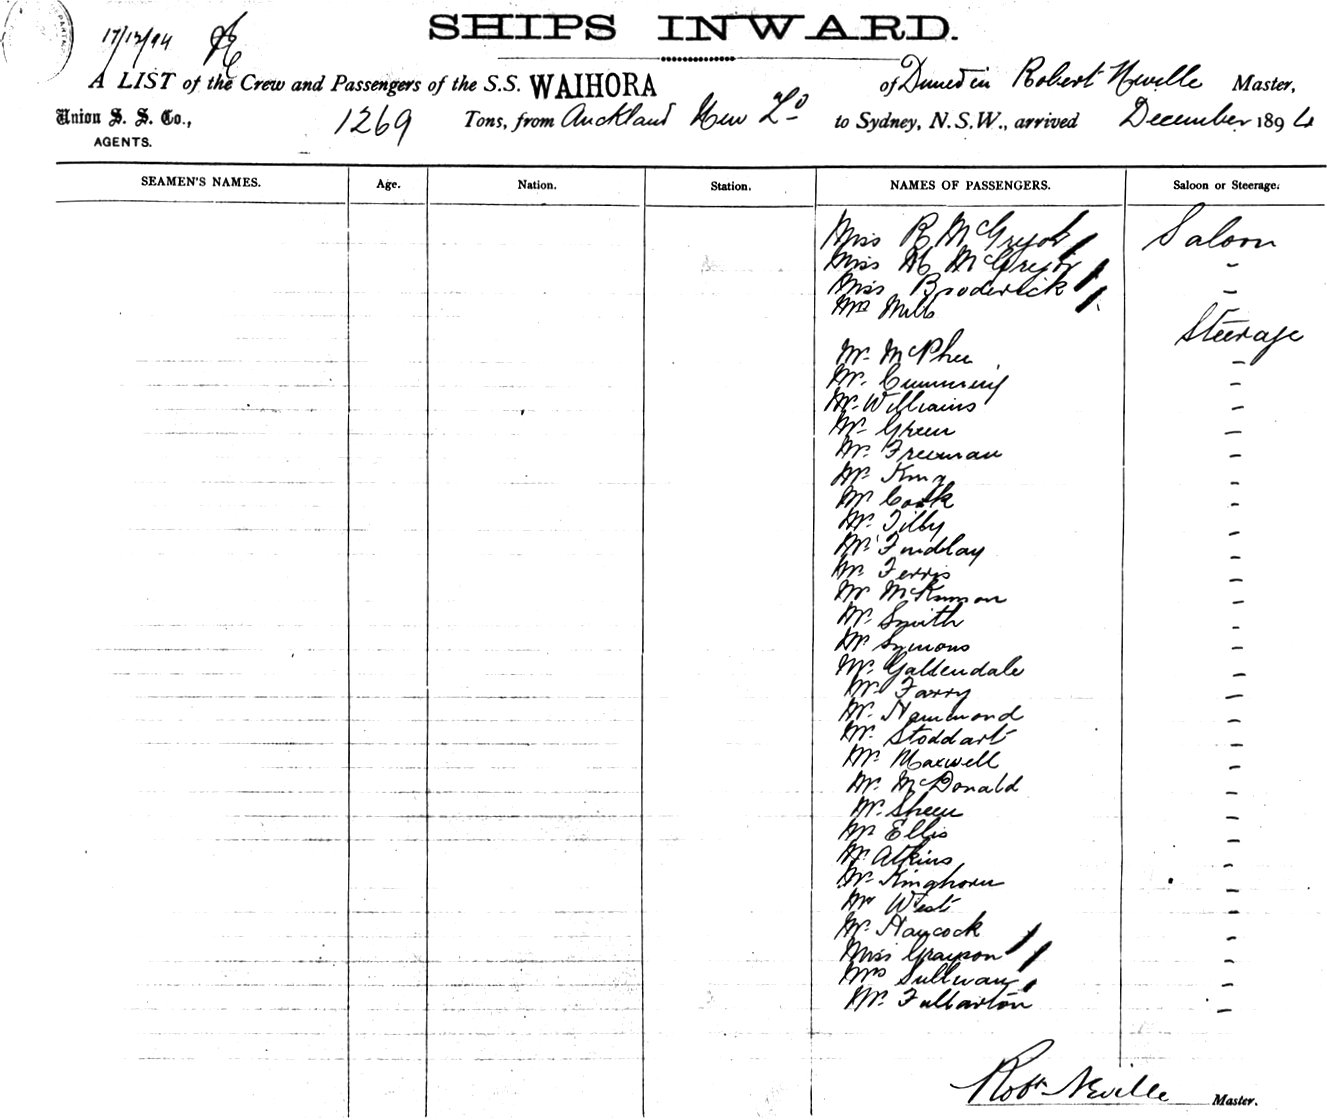 17/12/94
SHIPS INWARD.
A LIST of the Crew and Passengers of the S.S. WAIHORA of Dunedin Robert Neville Master,
Union S. S. Co., 1269 Tons, from Auckland New Zd to Sydney, N.S.W., arrived December 1894
AGENTS.
SEAMEN'S NAMES. Age. Nation. Station. NAMES OF PASSENGERS. Saloon or Steerage.
Miss R McGregor Saloon
Miss M McGregor "
Miss Broderick "
Mrs Mills
Steerage
Mr. McPhee "
Mr. Cumming "
Mr. Williams "
Mr. Green "
Mr. Freeman "
Mr. King "
Mr Cook "
Mr. Tilby "
Mr. Findlay "
Mr. Ferris "
Mr McKinnon "
Mr. Smith "
Mr Symons "
Mr. Galdendale "
Mr Farry "
Mr. Hammond "
Mr. Stoddart "
Mr. Maxwell "
Mr. McDonald "
Mr. Sheen "
Mr Ellis "
Mr Atkins "
Mr. Kinghorn "
Mr West "
Mr. Haycock "
Miss Grayson "
Mrs Sullivan "
Mr. Fullarton "
Robt Neville Master.